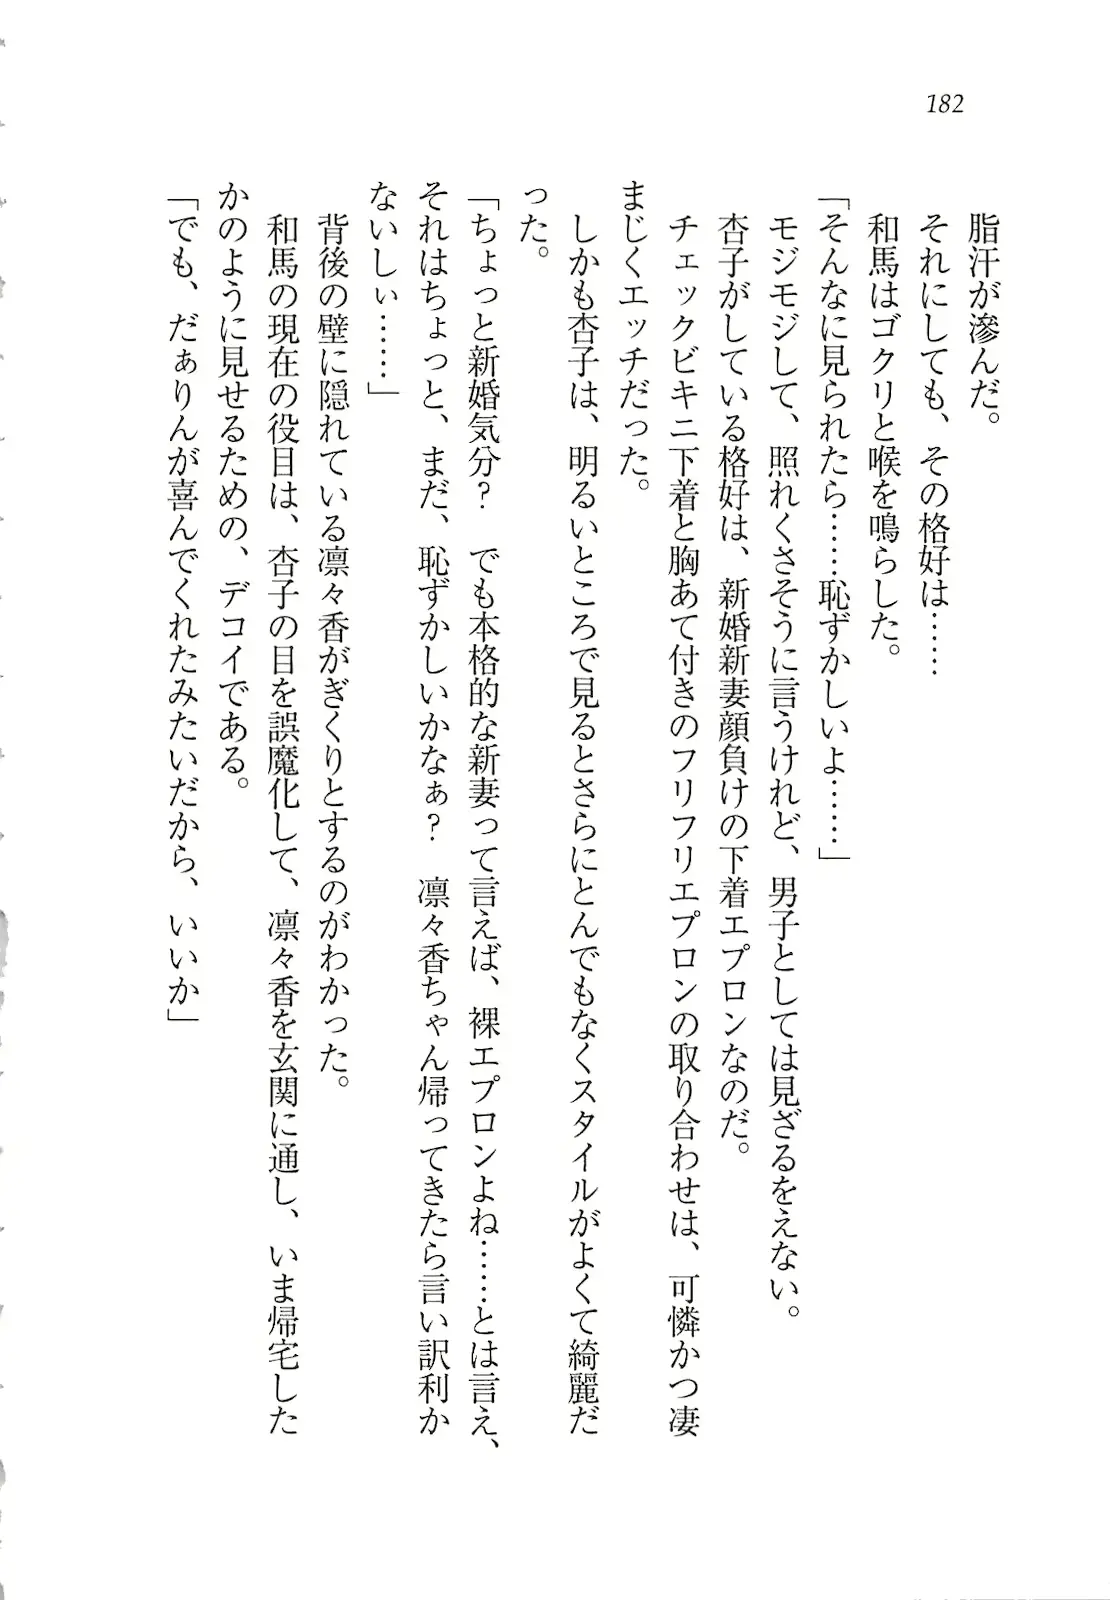 182
脂汗が滲んだ。
それにしても、その格好は……
和馬はゴクリと喉を鳴らした。
「そんなに見られたら……恥ずかしいよ……」
モジモジして、照れくさそうに言うけれど、男子としては見ざるをえない。
杏子がしている格好は、新婚新妻顔負けの下着エプロンなのだ。
チェックビキニ下着と胸あて付きのフリフリエプロンの取り合わせは、可憐かつ凄
まじくエッチだった。
しかも杏子は、明るいところで見るとさらにとんでもなくスタイルがよくて綺麗だ
った。
「ちょっと新婚気分？　でも本格的な新妻って言えば、裸エプロンよね……とは言え、
それはちょっと、まだ、恥ずかしいかなぁ？　凛々香ちゃん帰ってきたら言い訳利か
ないしぃ……」
背後の壁に隠れている凛々香がぎくりとするのがわかった。
和馬の現在の役目は、杏子の目を誤魔化して、凛々香を玄関に通し、いま帰宅した
かのように見せるための、デコイである。
「でも、だぁりんが喜んでくれたみたいだから、いいか」